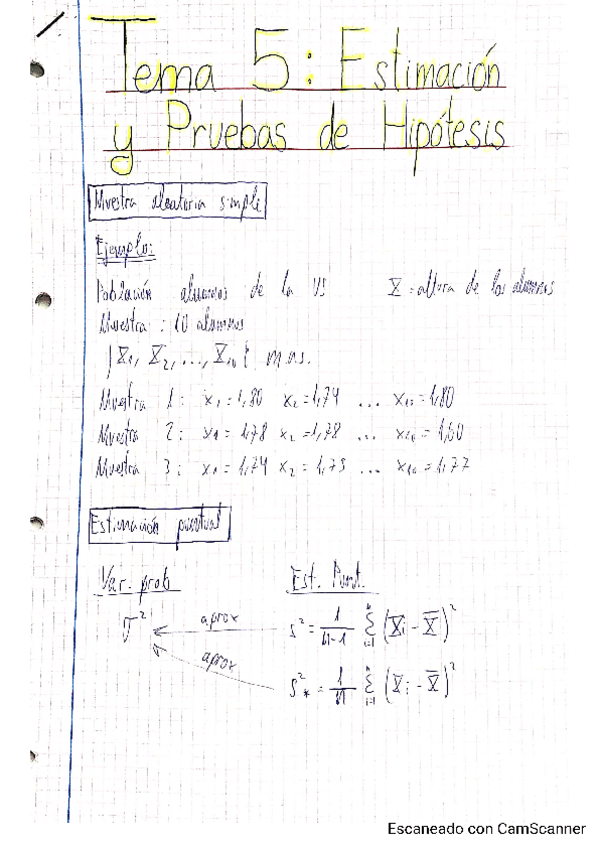 Tema 5: Estimación
y Pruebas de Hipótesis
Muestra aleatoria simple
Ejemplo:
Población alumnos de la US X = altura de los alumnos
Muestra : 10 alumnos
{X₁, X₂, ..., X₁₀} m.a.s.
Muestra 1: x₁ = 1,80 x₂ = 1,74 ... x₁₀ = 1,80
Muestra 2: x₁ = 1,78 x₂ = 1,78 ... x₁₀ = 1,60
Muestra 3: x₁ = 1,74 x₂ = 1,75 ... x₁₀ = 1,77
Estimación puntual
Var. prob Est. Punt.
σ² aprox s² = 1/(n-1) Σᵢ₌₁ⁿ (Xᵢ - X̄)²
aprox s²* = 1/n Σᵢ₌₁ⁿ (Xᵢ - X̄)²
Escaneado con CamScanner